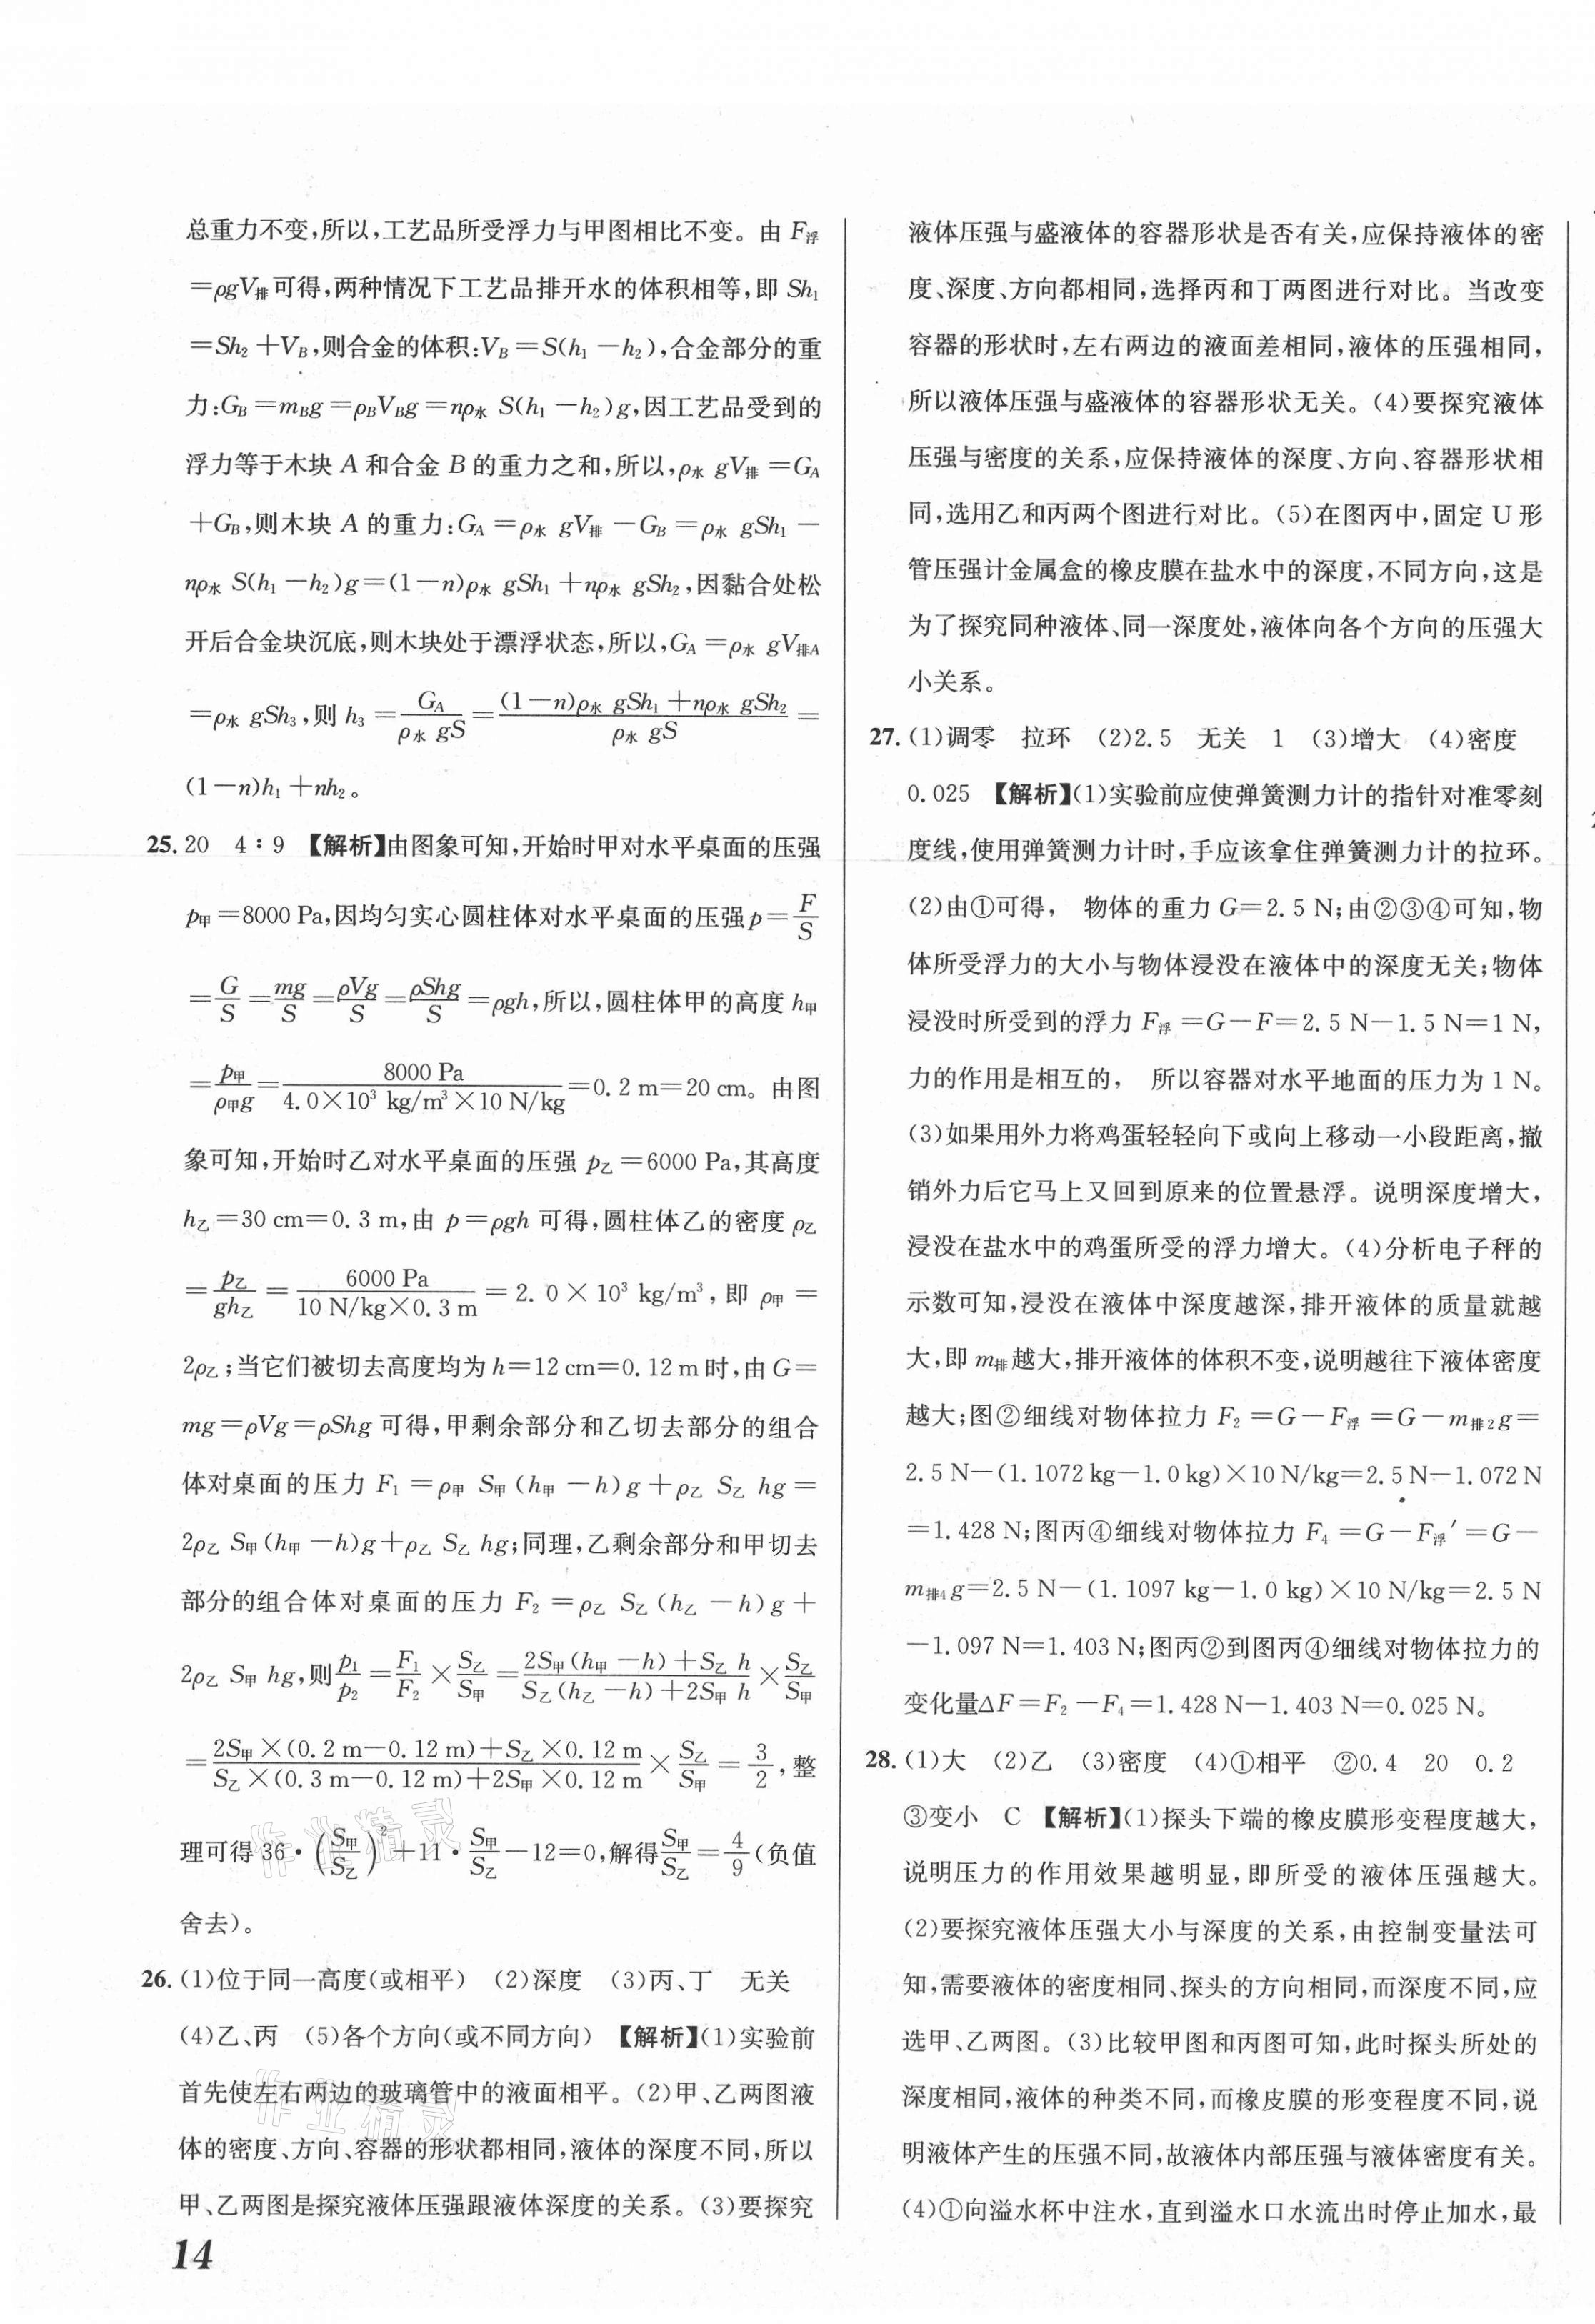 总重力不变,所以,工艺品所受浮力与甲图相比不变。由 F浮
=ρgV排可得,两种情况下工艺品排开水的体积相等,即 Sh₁
=Sh₂+V_B,则合金的体积:V_B=S(h₁-h₂),合金部分的重
力:G_B=m_Bg=ρ_BV_Bg=nρ水 S(h₁-h₂)g,因工艺品受到的
浮力等于木块 A 和合金 B 的重力之和,所以,ρ水 gV排=G_A
+G_B,则木块 A 的重力:G_A=ρ水 gV排-G_B=ρ水 gSh₁-
nρ水 S(h₁-h₂)g=(1-n)ρ水 gSh₁+nρ水 gSh₂,因黏合处松
开后合金块沉底,则木块处于漂浮状态,所以,G_A=ρ水 gV排A
=ρ水 gSh₃,则 h₃=G_A/(ρ水 gS)=((1-n)ρ水 gSh₁+nρ水 gSh₂)/(ρ水 gS)=
(1-n)h₁+nh₂。
25. 20 4∶9 【解析】由图象可知,开始时甲对水平桌面的压强
p甲=8000 Pa,因均匀实心圆柱体对水平桌面的压强p=F/S
=G/S=mg/S=ρVg/S=ρShg/S=ρgh,所以,圆柱体甲的高度 h甲
=p甲/(ρ甲g)=8000 Pa/(4.0×10³ kg/m³×10 N/kg)=0.2 m=20 cm。由图
象可知,开始时乙对水平桌面的压强 p乙=6000 Pa,其高度
h乙=30 cm=0.3 m,由 p=ρgh 可得,圆柱体乙的密度 ρ乙
=p乙/(gh乙)=6000 Pa/(10 N/kg×0.3 m)=2.0×10³ kg/m³,即 ρ甲=
2ρ乙;当它们被切去高度均为 h=12 cm=0.12 m 时,由 G=
mg=ρVg=ρShg 可得,甲剩余部分和乙切去部分的组合
体对桌面的压力 F₁=ρ甲 S甲(h甲-h)g+ρ乙 S乙 hg=
2ρ乙 S甲(h甲-h)g+ρ乙 S乙 hg;同理,乙剩余部分和甲切去
部分的组合体对桌面的压力 F₂=ρ乙 S乙(h乙-h)g+
2ρ乙 S甲 hg,则p₁/p₂=F₁/F₂×S乙/S甲=(2S甲(h甲-h)+S乙 h)/(S乙(h乙-h)+2S甲 h)×S乙/S甲
=(2S甲×(0.2 m-0.12 m)+S乙×0.12 m)/(S乙×(0.3 m-0.12 m)+2S甲×0.12 m)×S乙/S甲=3/2,整
理可得 36·(S甲/S乙)²+11·S甲/S乙-12=0,解得S甲/S乙=4/9(负值
舍去)。
26. (1)位于同一高度(或相平) (2)深度 (3)丙、丁 无关
(4)乙、丙 (5)各个方向(或不同方向) 【解析】(1)实验前
首先使左右两边的玻璃管中的液面相平。(2)甲、乙两图液
体的密度、方向、容器的形状都相同,液体的深度不同,所以
甲、乙两图是探究液体压强跟液体深度的关系。(3)要探究
14
液体压强与盛液体的容器形状是否有关,应保持液体的密
度、深度、方向都相同,选择丙和丁两图进行对比。当改变
容器的形状时,左右两边的液面差相同,液体的压强相同,
所以液体压强与盛液体的容器形状无关。(4)要探究液体
压强与密度的关系,应保持液体的深度、方向、容器形状相
同,选用乙和丙两个图进行对比。(5)在图丙中,固定 U 形
管压强计金属盒的橡皮膜在盐水中的深度,不同方向,这是
为了探究同种液体、同一深度处,液体向各个方向的压强大
小关系。
27. (1)调零 拉环 (2)2.5 无关 1 (3)增大 (4)密度
0.025 【解析】(1)实验前应使弹簧测力计的指针对准零刻
度线,使用弹簧测力计时,手应该拿住弹簧测力计的拉环。
(2)由①可得, 物体的重力 G=2.5 N;由②③④可知,物
体所受浮力的大小与物体浸没在液体中的深度无关;物体
浸没时所受到的浮力 F浮=G-F=2.5 N-1.5 N=1 N,
力的作用是相互的, 所以容器对水平地面的压力为 1 N。
(3)如果用外力将鸡蛋轻轻向下或向上移动一小段距离,撤
销外力后它马上又回到原来的位置悬浮。说明深度增大,
浸没在盐水中的鸡蛋所受的浮力增大。(4)分析电子秤的
示数可知,浸没在液体中深度越深,排开液体的质量就越
大,即 m排越大,排开液体的体积不变,说明越往下液体密度
越大;图②细线对物体拉力 F₂=G-F浮=G-m排2g=
2.5 N-(1.1072 kg-1.0 kg)×10 N/kg=2.5 N-1.072 N
=1.428 N;图丙④细线对物体拉力 F₄=G-F浮′=G-
m排4g=2.5 N-(1.1097 kg-1.0 kg)×10 N/kg=2.5 N
-1.097 N=1.403 N;图丙②到图丙④细线对物体拉力的
变化量ΔF=F₂-F₄=1.428 N-1.403 N=0.025 N。
28. (1)大 (2)乙 (3)密度 (4)①相平 ②0.4 20 0.2
③变小 C 【解析】(1)探头下端的橡皮膜形变程度越大,
说明压力的作用效果越明显,即所受的液体压强越大。
(2)要探究液体压强大小与深度的关系,由控制变量法可
知,需要液体的密度相同、探头的方向相同,而深度不同,应
选甲、乙两图。(3)比较甲图和丙图可知,此时探头所处的
深度相同,液体的种类不同,而橡皮膜的形变程度不同,说
明液体产生的压强不同,故液体内部压强与液体密度有关。
(4)①向溢水杯中注水,直到溢水口水流出时停止加水,最
作业精灵
作业精灵